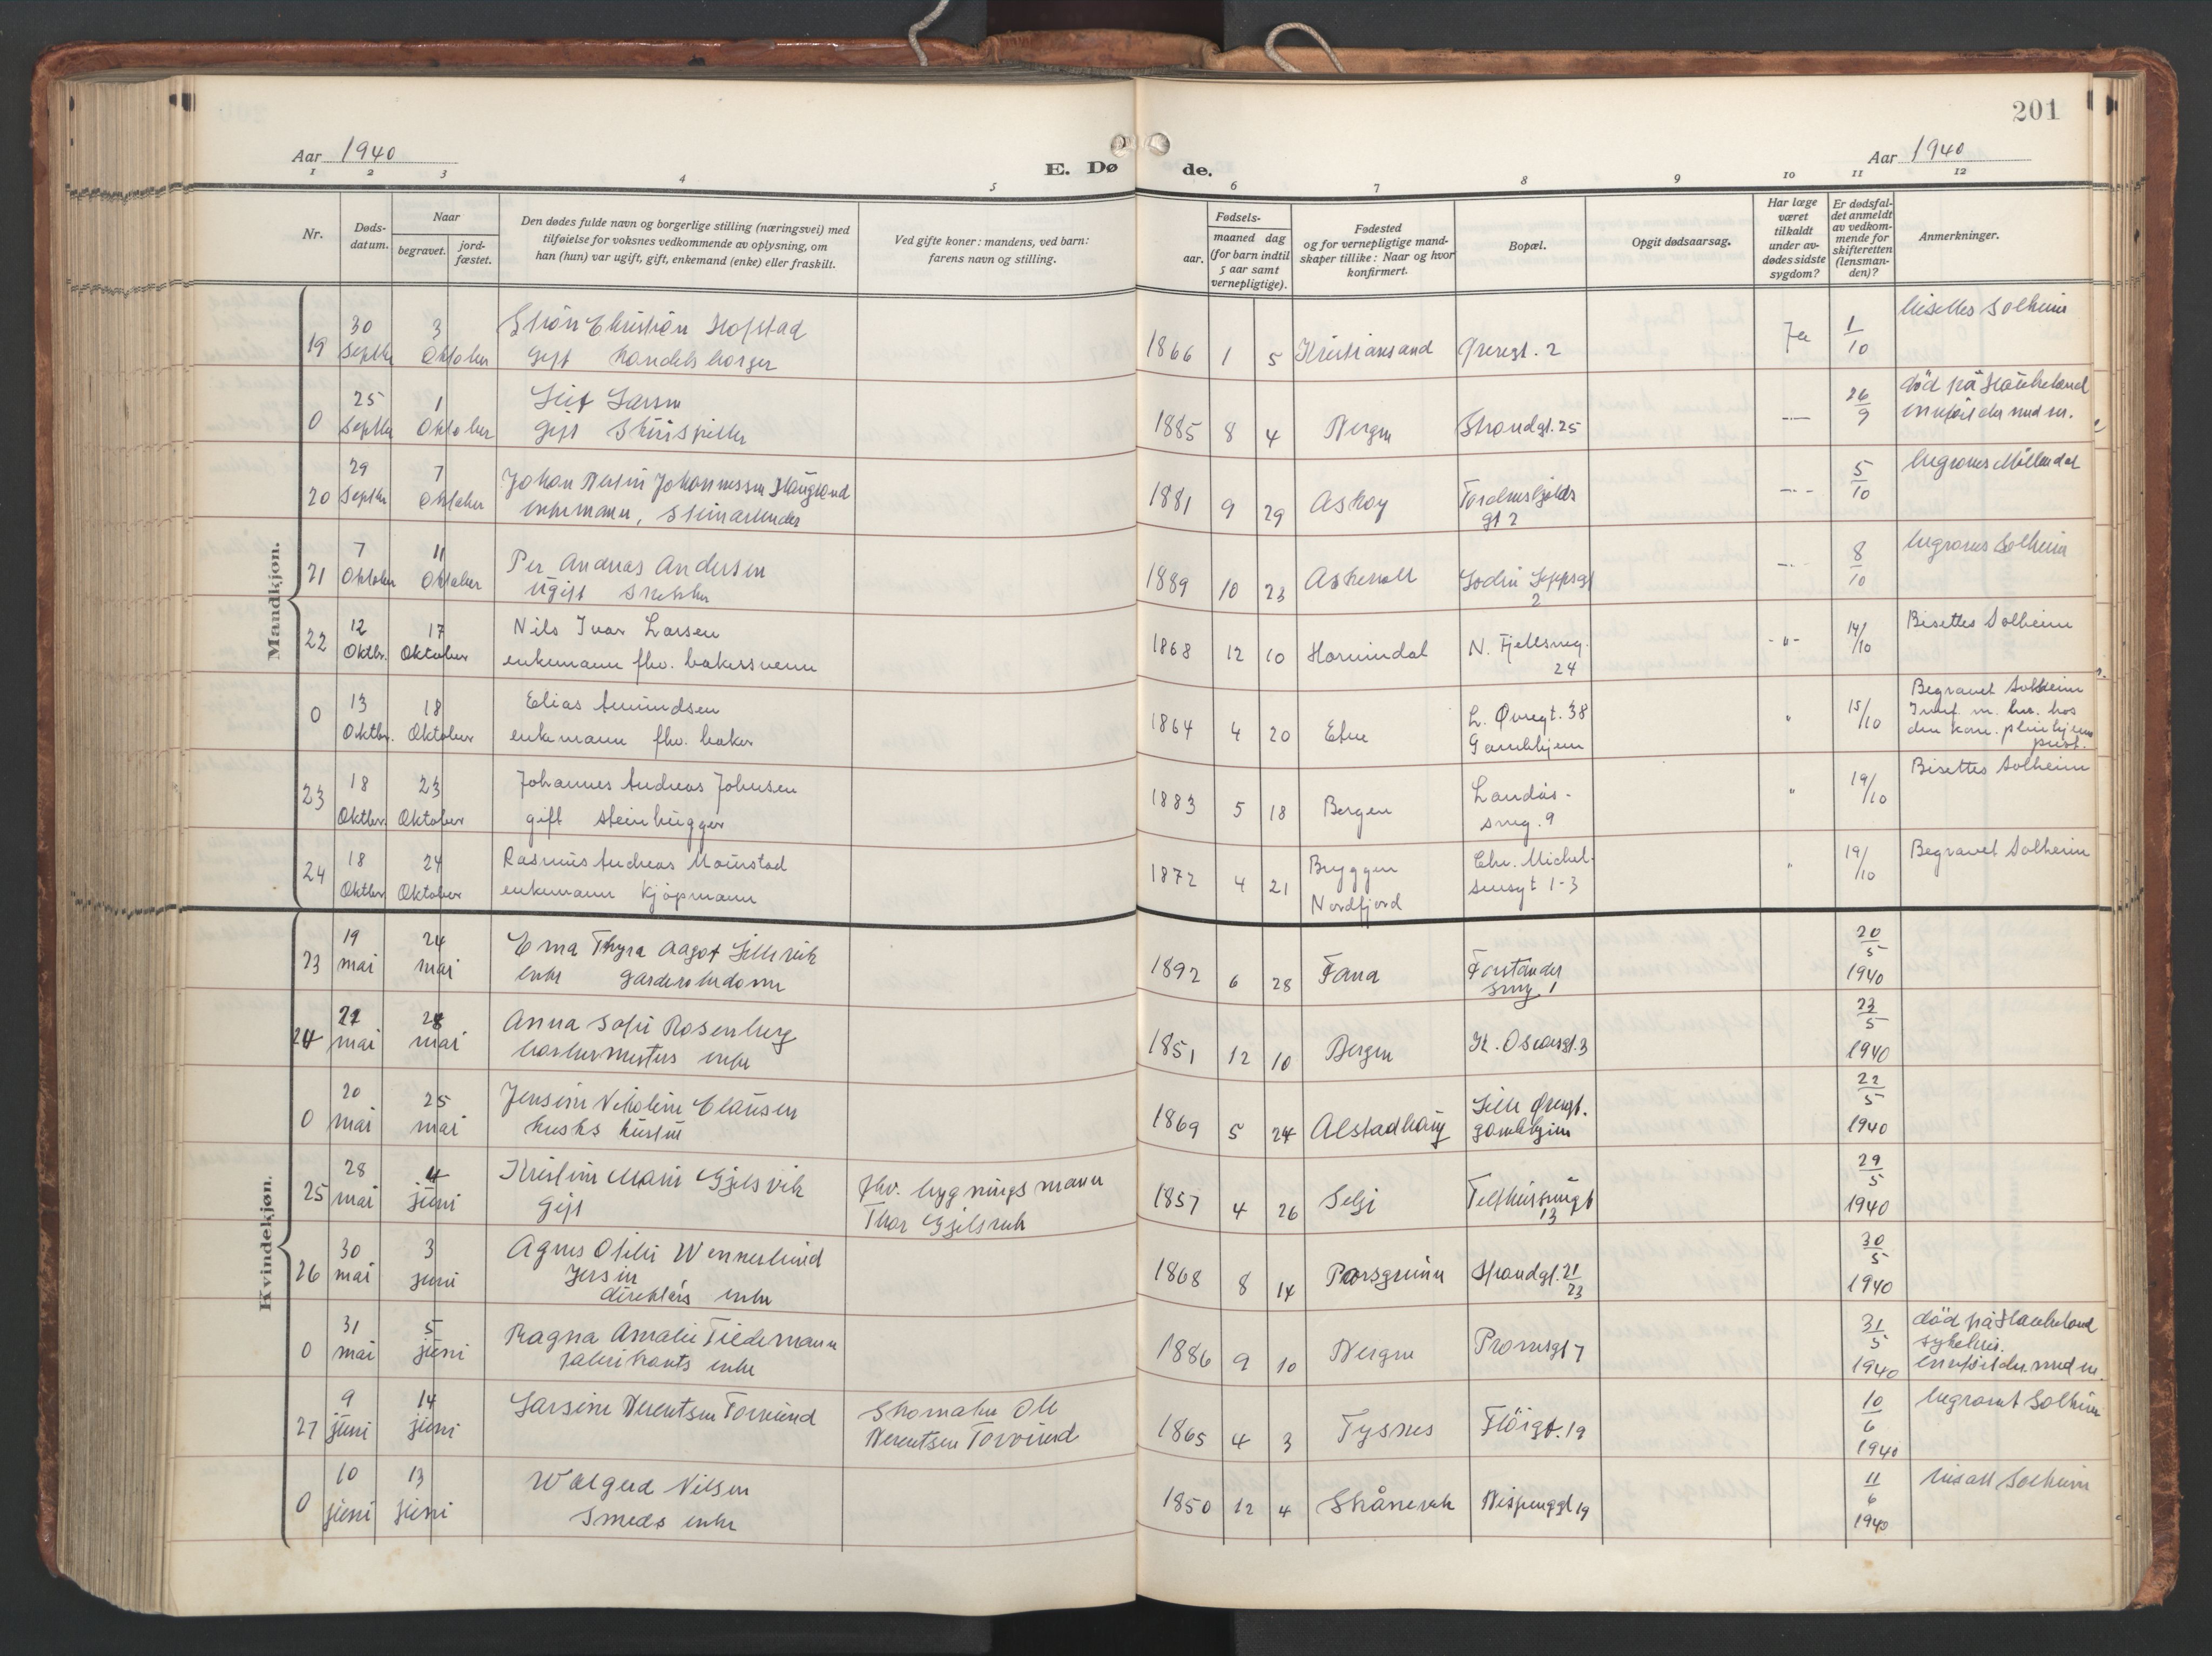 201
Aar 1940
E. Dø de.
Aar 1940
1 2 3 4 5 6 7 8 9 10 11 12
Nr.
Døds-
datum.
Naar
begravet.
jord-
fæstet.
Den dødes fulde navn og borgerlige stilling (næringsvei) med
tilføielse for voksnes vedkommende av oplysning, om
han (hun) var ugift, gift, enkemand (enke) eller fraskilt.
Ved gifte koner: mandens, ved barn:
farens navn og stilling.
Fødsels-
aar.
maaned dag
(for barn indtil
5 aar samt
vernepligtige).
Fødested
og for vernepligtige mand-
skaper tillike: Naar og hvor
konfirmert.
Bopæl.
Opgit dødsaarsag.
Har læge
været
tilkaldt
under av-
dødes sidste
sygdom?
Er dødsfal-
det anmeldt
av vedkom-
mende for
skifteretten
(lensman-
den)?
Anmerkninger.
Mandkjøn.
19 30 Septbr 3 Oktober Christian Hofstad
gift handelsborger
1866 1 5 Kristiansand Øvregt. 2 Ja 1/10 bisettes Solheim
0 25 Septbr 1 Oktober Leif Larsen
gift skuespiller
1885 8 4 Bergen Strandgt. 25 -"- 26/9 død på Haukeland
20 29 Septbr 7 Oktober Johan Johannessen Haugland
enkemann,
1881 9 29 Askøy Tordenskjolds
gt 2 -"- 5/10 begraves Møllendal
21 7 Oktober 11 Oktober Per Andreas Andersen
ugift snekker
1889 10 23 Askevoll
2 -"- 8/10 begraves Solheim
22 12 Oktbr. 17 Oktober Nils Ivar Larsen
enkemann fhv. bakersvenn
1868 12 10 Hornindal N. Fjellsmug.
24 -"- 14/10 Bisettes Solheim
0 13 Oktbr. 18 Oktober Elias Amundsen
enkemann fhv. baker
1864 4 20 Etne L. Øvregt. 38
Gamlehjem " 15/10 Begravet Solheim
23 18 Oktbr. 23 Oktober Johannes Andreas Johnsen
gift steinhugger
1883 5 18 Bergen Landås-
smug. 9 " 19/10 Bisettes Solheim
24 18 Oktbr. 24 Oktober Rasmus Andreas Maurstad
enkemann kjøpmann
1872 4 21 Bryggen
Nordfjord Chr. Michel-
sensgt 1-3 " 19/10 Begravet Solheim
Kvindekjøn.
23 19 mai 24 mai Erna Thyra Aagot Lillevik
enke garderobedame
1892 6 28 Fana Forstander
smug 1 20/5 1940
24 mai 28 mai Anna Sofie Rosenberg
enke
1851 12 10 Bergen K. Oscarsgt. 3 23/5 1940
0 20 mai 25 mai Jensine Nikoline Clausen
kusks hustru
1869 5 24 Alstadhaug Lille Øvregt.
gamlehjem 22/5 1940
25 28 mai 4 juni Kristine Marie Gjelsvik
gift
fhv. bygningsmann
Thor Gjelsvik
1857 4 26 Selje
13 29/5 1940
26 30 mai 3 juni Agnes Otilie Wennerlund
Jersin
direktørs enke
1868 8 14 Porsgrunn Strandgt. 21/23 30/5 1940
0 31 mai 5 juni Ragna Amalie Tiedemann
fabrikants enke
1886 9 10 Bergen Promsgt 7 31/5 1940 død på Haukeland
sykehus.
27 9 juni 14 juni Larsine Berentsen Torvund
Skomaker Ole
Berentsen Torvund
1865 4 3 Tysnes Fløigt. 19 10/6 1940 begravet Solheim
0 10 juni 13 juni Walgerd Nilsen
Smeds enke
1850 12 4 Skånevik Bispenggt 19 11/6 1940 bisatt Solheim